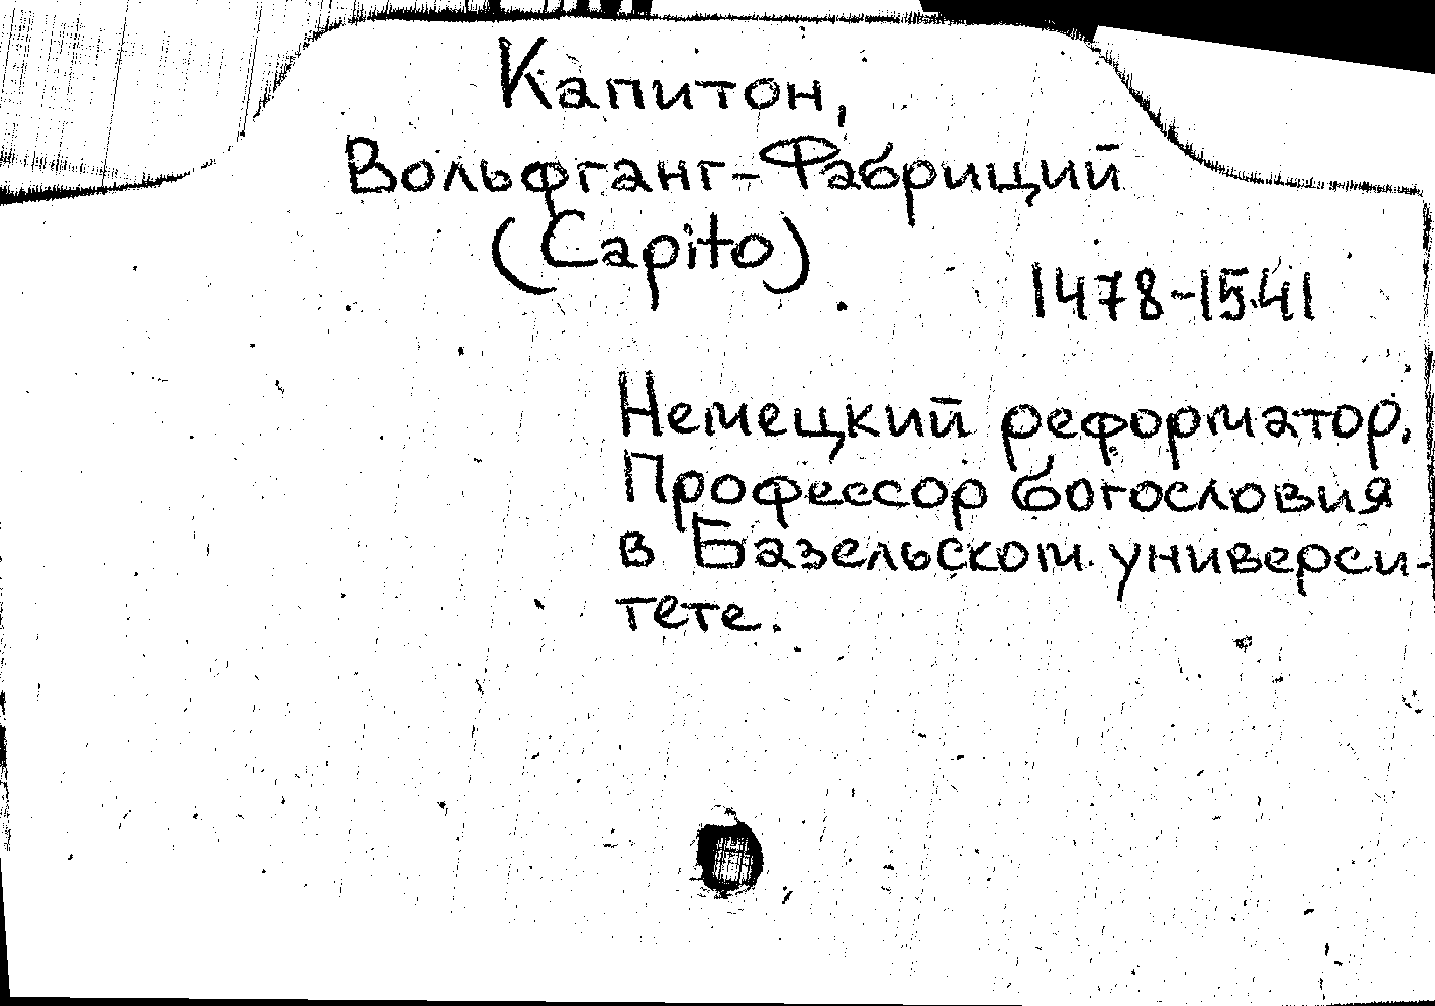 Капитон,
Вольфганг-Фабриций
(Capito)
1478-1541
Немецкий реформатор.
Профессор богословия
в Базельском универси-
тете.